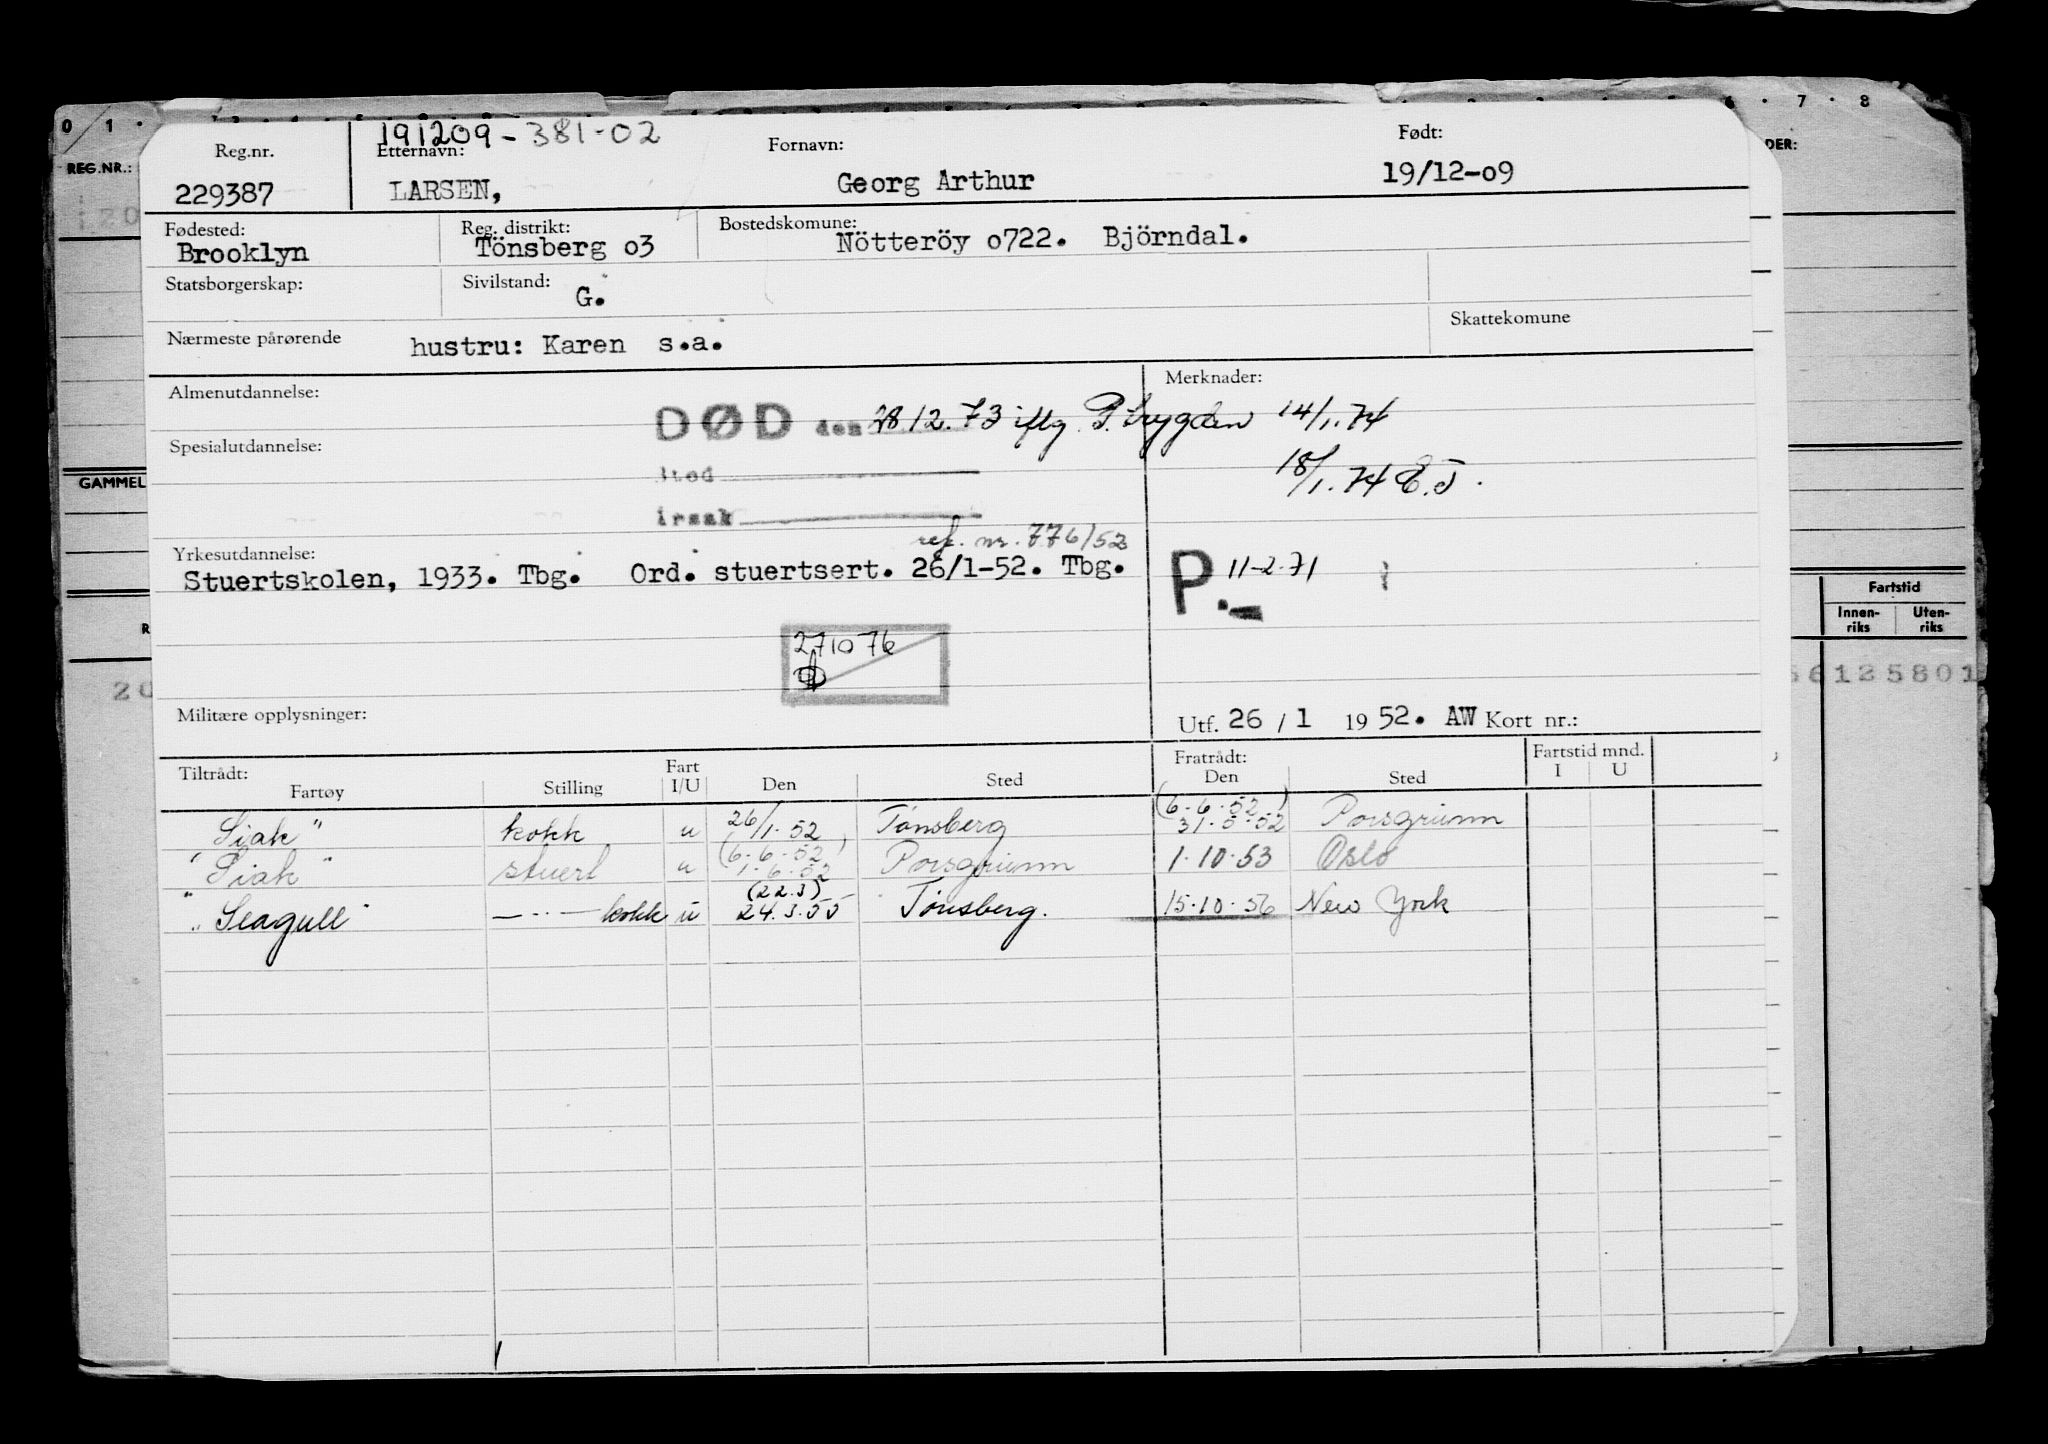 0 1
6 · 7 · 8
REG.NR.:
DER:
191209-381-02
Reg.nr. Etternavn: Fornavn: Født:
229387 LARSEN, Georg Arthur 19/12-09
Fødested: Reg. distrikt: Bostedskomune:
Brooklyn Tönsberg o3 Nötteröy o722. Björndal.
Statsborgerskap: Sivilstand: G.
Nærmeste pårørende hustru: Karen s.a. Skattekomune
Almenutdannelse: Merknader:
DØD den 28 12.73 iflg P.trygden 14/1.74
Spesialutdannelse:
sted 18/1.74 E.J.
GAMMEL
årsak
ref. nr. 776/52
Yrkesutdannelse:
Stuertskolen, 1933. Tbg. Ord. stuertsert. 26/1-52. Tbg. P.- 11-2-71
Fartstid
Innen-riks Uten-riks
271076
20
56125801
Militære opplysninger: Utf. 26 / 1 19 52. AW Kort nr.:
Tiltrådt: Fart Fratrådt: Fartstid mnd.
Fartøy Stilling I/U Den Sted Den Sted I U
(6.6.52)
"Siak" kokk u 26/1.52 Tønsberg 31.5.52 Porsgrunn
(6.6.52)
"Siak" stuert u 1.6.52 Porsgrunn 1.10.53 Oslo
(22.3)
"Seagull" —··— kokk u 24.3.55 Tønsberg. 15.10.56 New York